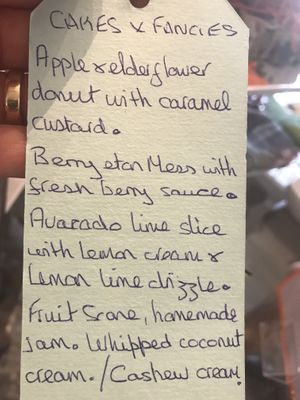 CAKES & FANCIES
Apple & elderflower
donut with caramel
custard.
Berry eton Mess with
fresh berry sauce.
Avacado lime slice
with lemon cream &
Lemon lime drizzle.
Fruit Scone, homemade
jam. Whipped coconut
cream./Cashew cream.